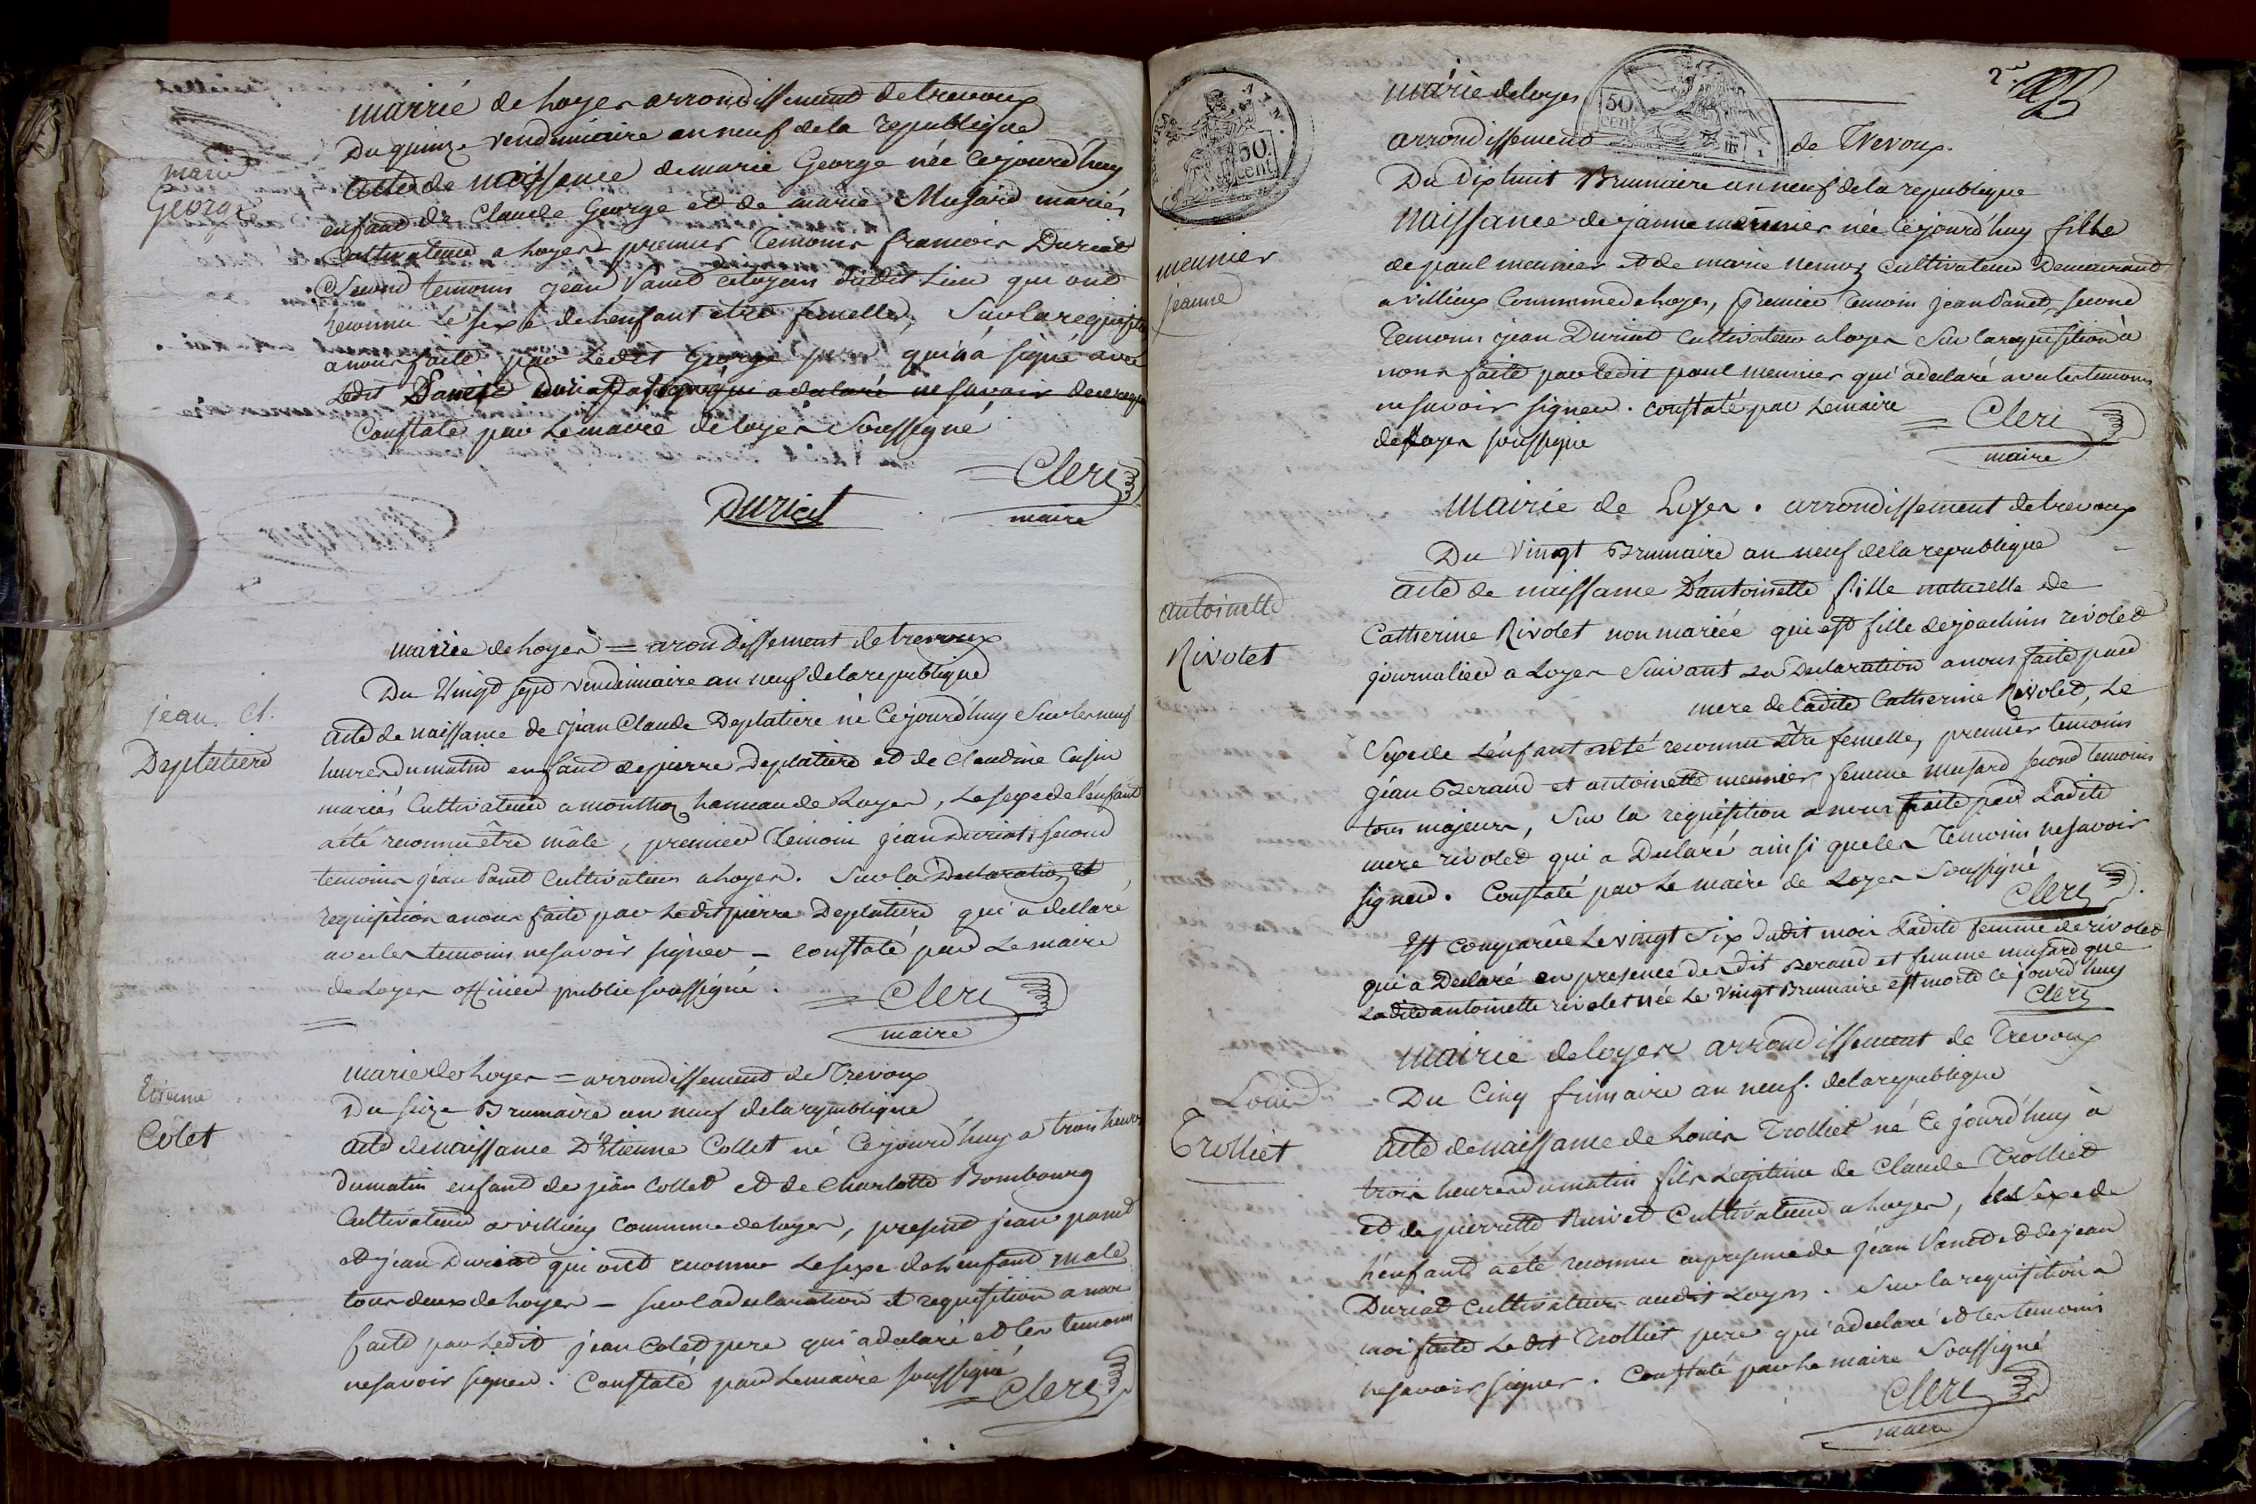 marie
George
mairié de Loyes arrondissement de trevoux
Du quinze vendemiaire an neuf de la republique
acte de naissance de marie George née cejourd'huy
enfant de Claude George et de marie Musard mariés
cultivateur a Loyes premier temoins francois Duriat
Second temoins jean Panet citoyens dudit Lieu qui ont
reconnu le sexe de Lenfant etre femelle, Sur la requisition
a nous faite par Ledit George pere qui n'a signé avec
Ledit
Constaté par Le maire de loyes Soussigné
Cleri
maire
Duriat
jean Cl.
Deplatiere
mairie de Loyes = arondissement de trevoux
Du Vingt sept vendemiaire an neuf de la republique
acte de naissance de jean Claude Deplatiere né Cejourd'huy Sur les neuf
heures du matin enfant de pierre Deplatiere et de Claudine Cusin
mariés Cultivateur a monthoz hameau de Loyes, Le sexe de l'enfant
a été reconnu être mâle, premier temoin jean duriat, second
temoins jean Panet Cultivateurs a Loyes. Sur la Declaration et
requisition a nous faite par Ledit pierre Deplatiere qui a dellaré
avec les temoins ne savoir signer - constaté par Le maire
de Loyes officier public soussigné.
Cleri
maire
Etienne
Colet
marie de Loyes = arrondissement de Trevoux
Du seize Brumaire an neuf de la republique
acte de naissance D'Etienne Collet né Cejourd'huy a trois heures
du matin enfant de jean Collet et de Charlotte Bombourg
Cultivateur a villieux commune de Loyes, present jean panet
et jean Duriat qui ont reconnu Le sexe de Lenfant male
tous deux de Loyes - sur la declaration et requisition a nous
faite par Ledit jean Colet pere qui a declaré et les temoins
ne savoir signer. Constaté par Le maire soussigné
Cleri
2
50 cent
50 cent
mairie de loyes
arrondissement de Trevoux.
meunier
jeanne
Du Dix huit Brumaire an neuf de la republique
Naissance de jeanne meunier née cejourd'huy fille
de paul meunier et de marie Cultivateur Demeurant
a villieux Commune de Loyes, premier temoin jean Panet, second
temoins jean Duriat Cultivateurs a loyes Sur la requisition à
nous faite par Ledit paul meunier qui a declaré avec les temoins
ne savoir signer. constaté par Le maire
de Loyes soussigné
Cleri
maire
Mairie de Loyes. arrondissement de trevoux
Du Vingt Brumaire an neuf de la republique
antoinette
Rivolet
acte de naissance D'antoinette fille naturelle de
Catherine Rivolet non mariée qui est fille de joachim rivolet
journalier a Loyes Suivant La Declaration a nous faite par
mere de ladite Catherine Rivolet, Le
Sexe de L'enfant a été reconnu être femelle, premier temoins
jean Beraud et antoinette meunier femme musard second temoins
tous majeurs, Sur la requisition a nous faite par Ladite
mere rivolet qui a Declaré ainsi que les temoins ne savoir
signer. Constaté par Le maire de Loyes Soussigné
Cleri
Est comparûe Le vingt Six dudit mois Ladite femme de rivolet
qui a Declaré en presence desdit Beraud et femme musard que
Ladite antoinette rivolet née Le Vingt Brumaire est morte ce jourd'huy
Cleri
mairie de loyes arrondissement de Trevoux
Louis
Trolliet
Du Cinq frimaire an neuf. de la republique
acte de naissance de Louis Trolliet né Ce jourd'huy à
trois heures du matin fils Legitime de Claude Trolliet
et de pierrette Cultivateur a Loyes, Le Sexe de
L'enfant a été reconnu en presence de jean Panet et de jean
Duriat Cultivateurs audit Loyes. Sur la requisition a
moi faite Ledit Trolliet pere qui a declaré et les temoins
ne savoir signer. Constaté par Le maire Soussigné
Cleri
maire